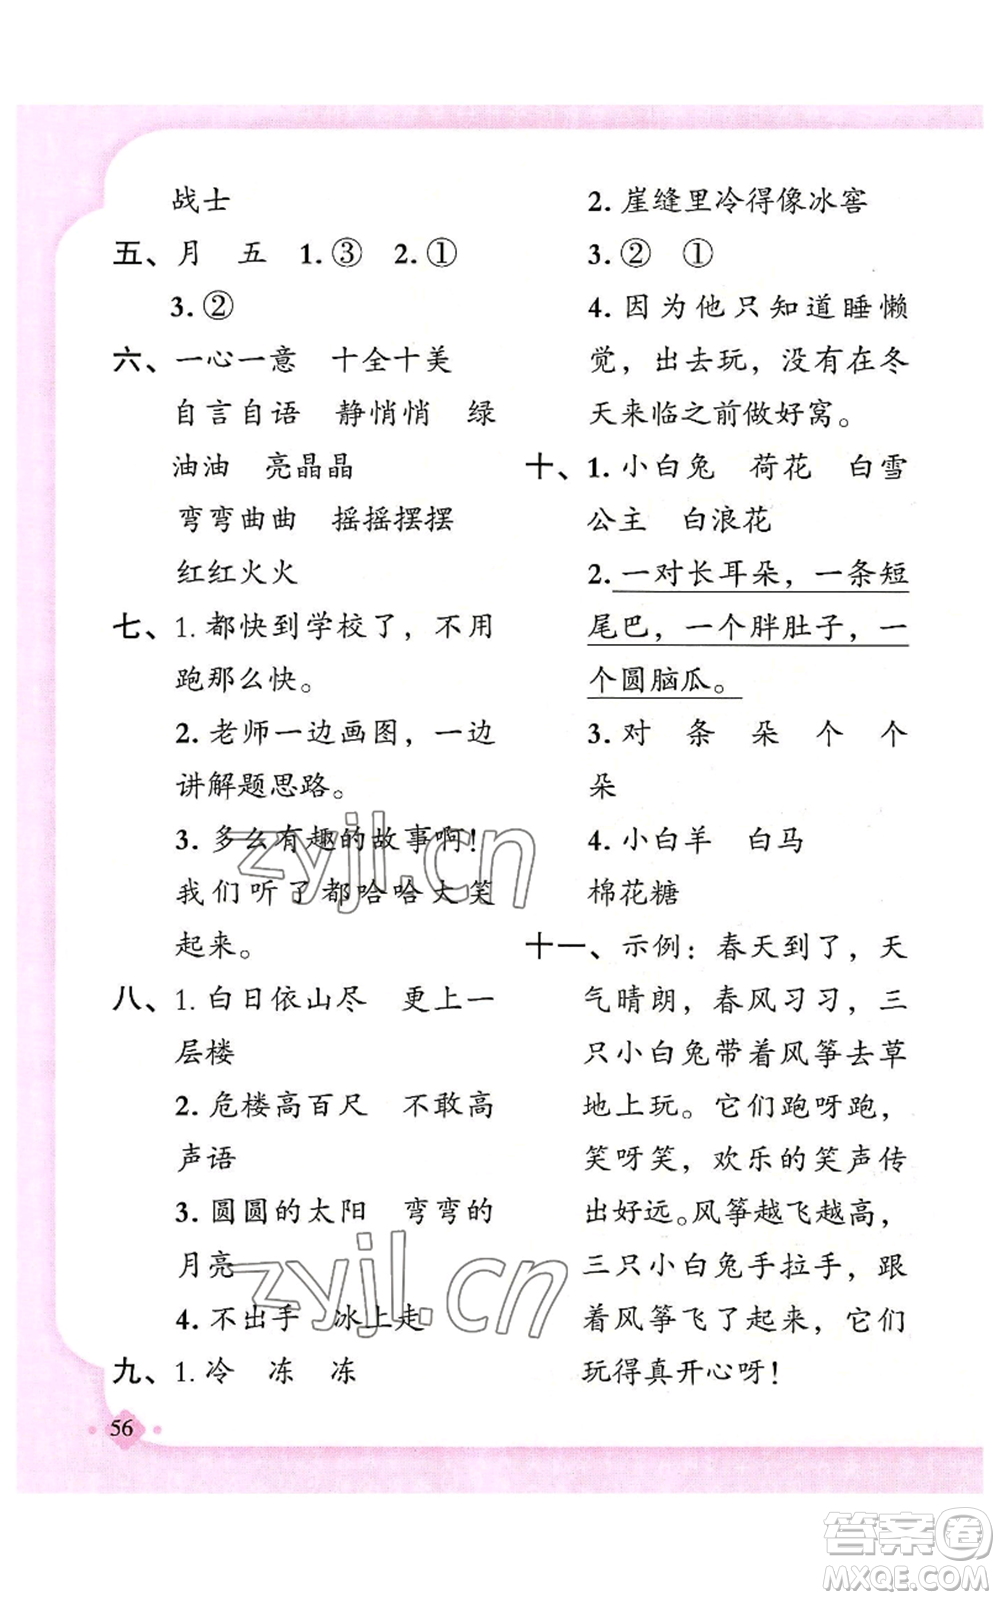 战士
五、月 五 1.③ 2.①
3.②
六、一心一意 十全十美
自言自语 静悄悄 绿
油油 亮晶晶
弯弯曲曲 摇摇摆摆
红红火火
七、1.都快到学校了，不用
跑那么快。
2.老师一边画图，一边
讲解题思路。
3.多么有趣的故事啊！
我们听了都哈哈大笑
起来。
八、1.白日依山尽 更上一
层楼
2.危楼高百尺 不敢高
声语
3.圆圆的太阳 弯弯的
月亮
4.不出手 冰上走
九、1.冷 冻 冻
2.崖缝里冷得像冰窖
3.② ①
4.因为他只知道睡懒
觉，出去玩，没有在冬
天来临之前做好窝。
十、1.小白兔 荷花 白雪
公主 白浪花
2.一对长耳朵，一条短
尾巴，一个胖肚子，一
个圆脑瓜。
3.对 条 朵 个 个
朵
4.小白羊 白马
棉花糖
十一、示例：春天到了，天
气晴朗，春风习习，三
只小白兔带着风筝去草
地上玩。它们跑呀跑，
笑呀笑，欢乐的笑声传
出好远。风筝越飞越高，
三只小白兔手拉手，跟
着风筝飞了起来，它们
玩得真开心呀！
56
zyjl.cn
zyjl.cn
答案圈
MXQE.COM